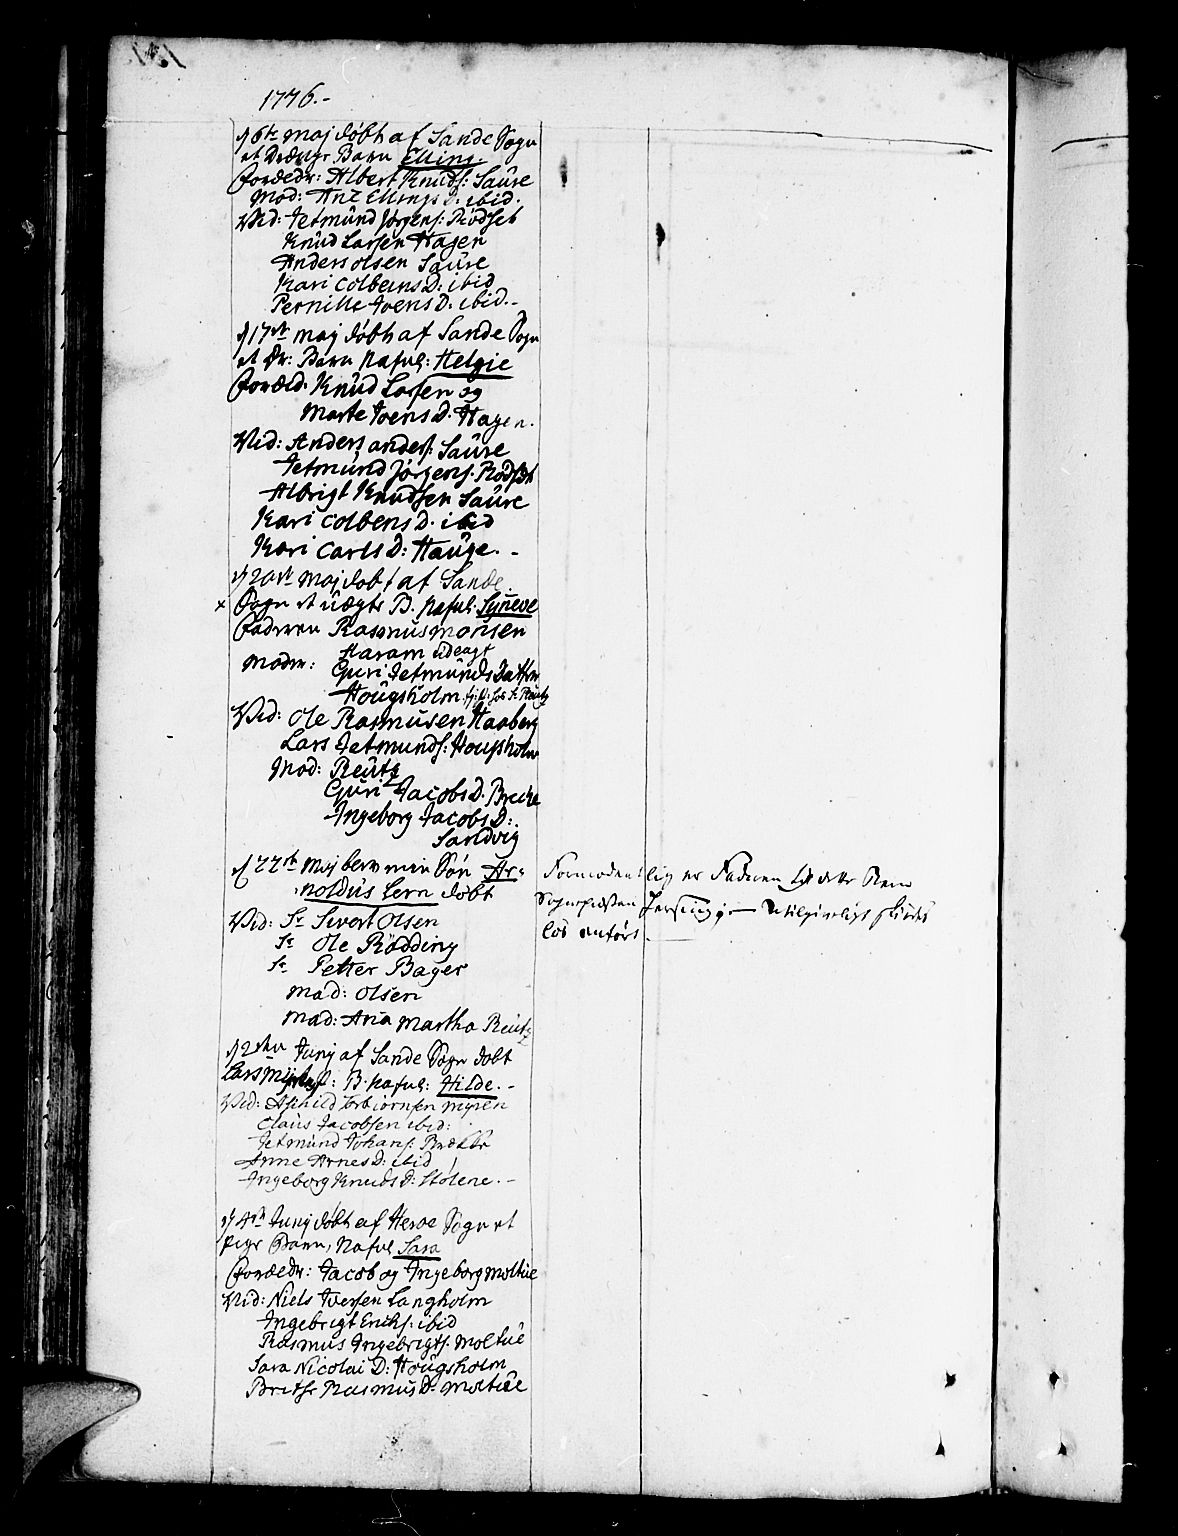 1776.-
d 6te Maj döbt af Sande Sogn
et Drænge Barn Elling.
Forældr: Albert Knuds: Saure
Mod: Ane Ellings D: ibid.
Vid: Jetmund Jørgens: Rödset
Knud Larsen Hagen
Anders Olsen Saure
Kari Colbens D: ibid
Pernille Ivens D: ibid.-
d 17de Maj döbt af Sande Sogn
et Dr: Barn Nafnl: Helgie
Foræld: Knud Larsen og
Marte Ivens D. Hagen.
Vid: Anders Anders: Saure
Jetmund Jørgens. Rödset
Albrigt Knudsen Saure
Kari Colbens D. ibid
Kari Carls D: Hauge. -
d 20de Maj döbt af Sande
x Sogn et uægte B. Nafnl. Syneve
Faderen Rasmus Monsen
Haram
Moder: Guri Jetmunds Datter
Hougsholm
Vid: Ole Rasmusen Haaberg
Lars Jetmunds: Hougsholm
Mad: Reutz
Guri Jacobs D. Brecke
Ingeborg Jacobs D:
Sandvig
d 22de Maj blev min Sön Ar-
noldus Lern döbt
Vid: Sr Sivert Olsen
Sr Ole Rödding
Sr Petter Bager
Mad: Olsen
Mad: Ana Martha Reutz
Formodentlig er Faderen til dette Barn
Sognepræsten Jersin; - utilgiveligt skiødes
løs anført.
d 2den Junj af Sande Sogn döbt
Lars B. Nafnl: Hilde. -
Vid: Torbiörnsen Myren
Claus Jacobsen ibid:
Jetmund Johans: Brække
Anne Arnes D: ibid
Ingeborg Knuds D: Stölene. -
d 4de Junj döbt af Heröe Sogn et
Pige Barn, Nafnl Sara
Forældr: Jacob og Ingeborg Moltue
Vid: Niels Iversen Langholm
Ingebrigt Erichs: ibid
Rasmus Ingebrigts. Moltue
Sara Nicolai D: Hougsholm
Brithe Rasmus D: Moltue